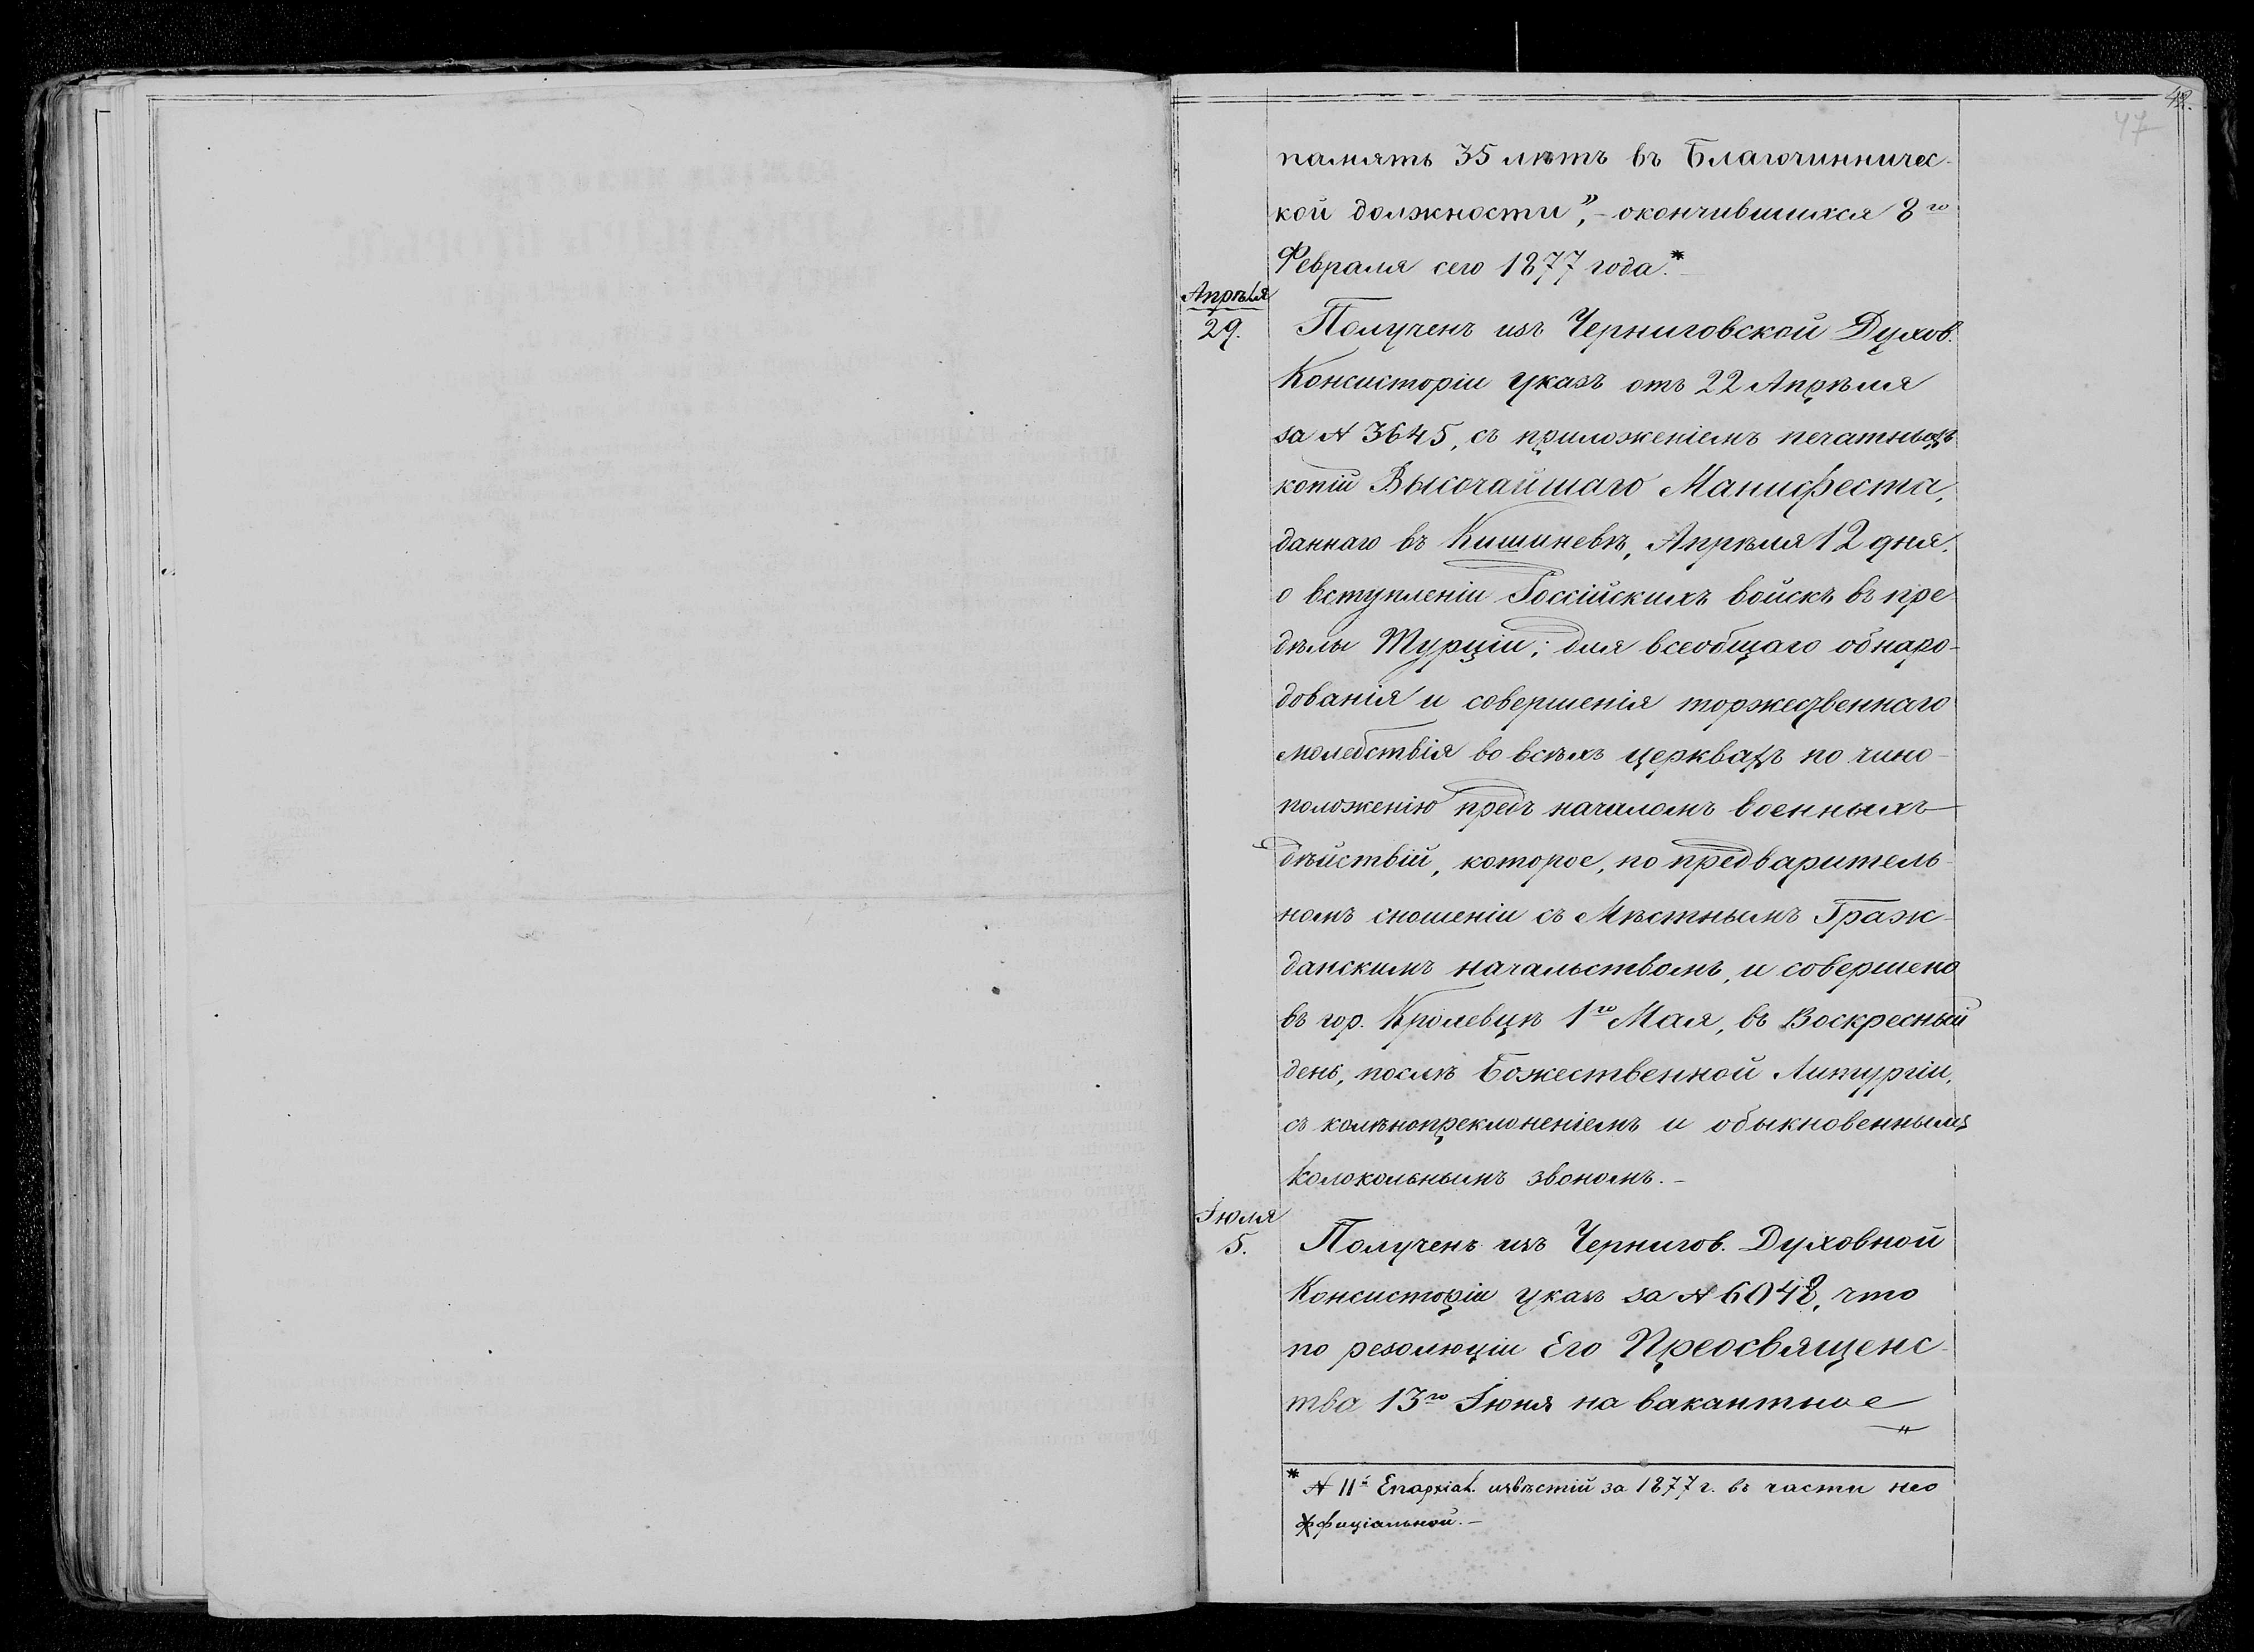 48.
47
память 35 лѣтъ въ Благочинничес-
кой должности”, - окончившихся 8го
Февраля сего 1877 года.*
Апрѣля
29.
Полученъ изъ Черниговской Духов.
Консисторіи указъ отъ 22 Апрѣля
за № 3645, съ приложеніемъ печатныхъ
копій Высочайшаго Манифеста,
даннаго въ Кишиневѣ, Апрѣля 12 дня,
о вступленіи Россійскихъ войскъ въ пре-
дѣлы Турціи; для всеобщаго обнаро-
дованія и совершенія торжественнаго
молебствія во всѣхъ церквахъ по чино-
положенію предъ началомъ военныхъ
дѣйствій, которое, по предваритель-
номъ сношеніи съ Мѣстнымъ Граж-
данскимъ начальствомъ, и совершено
въ гор. Кролевцѣ 1го Мая, въ Воскресный
день, послѣ Божественной Литургіи,
съ колѣнопреклоненіемъ и обыкновеннымъ
колокольнымъ звономъ. -
Іюля
5.
Полученъ изъ Чернигов. Духовной
Консисторіи указъ за № 6048, что
по резолюціи Его Преосвященс-
тва 13го Іюня на вакантное
* № 11й Епархіал. извѣстій за 1877 г. въ части нео
ффиціальной. -